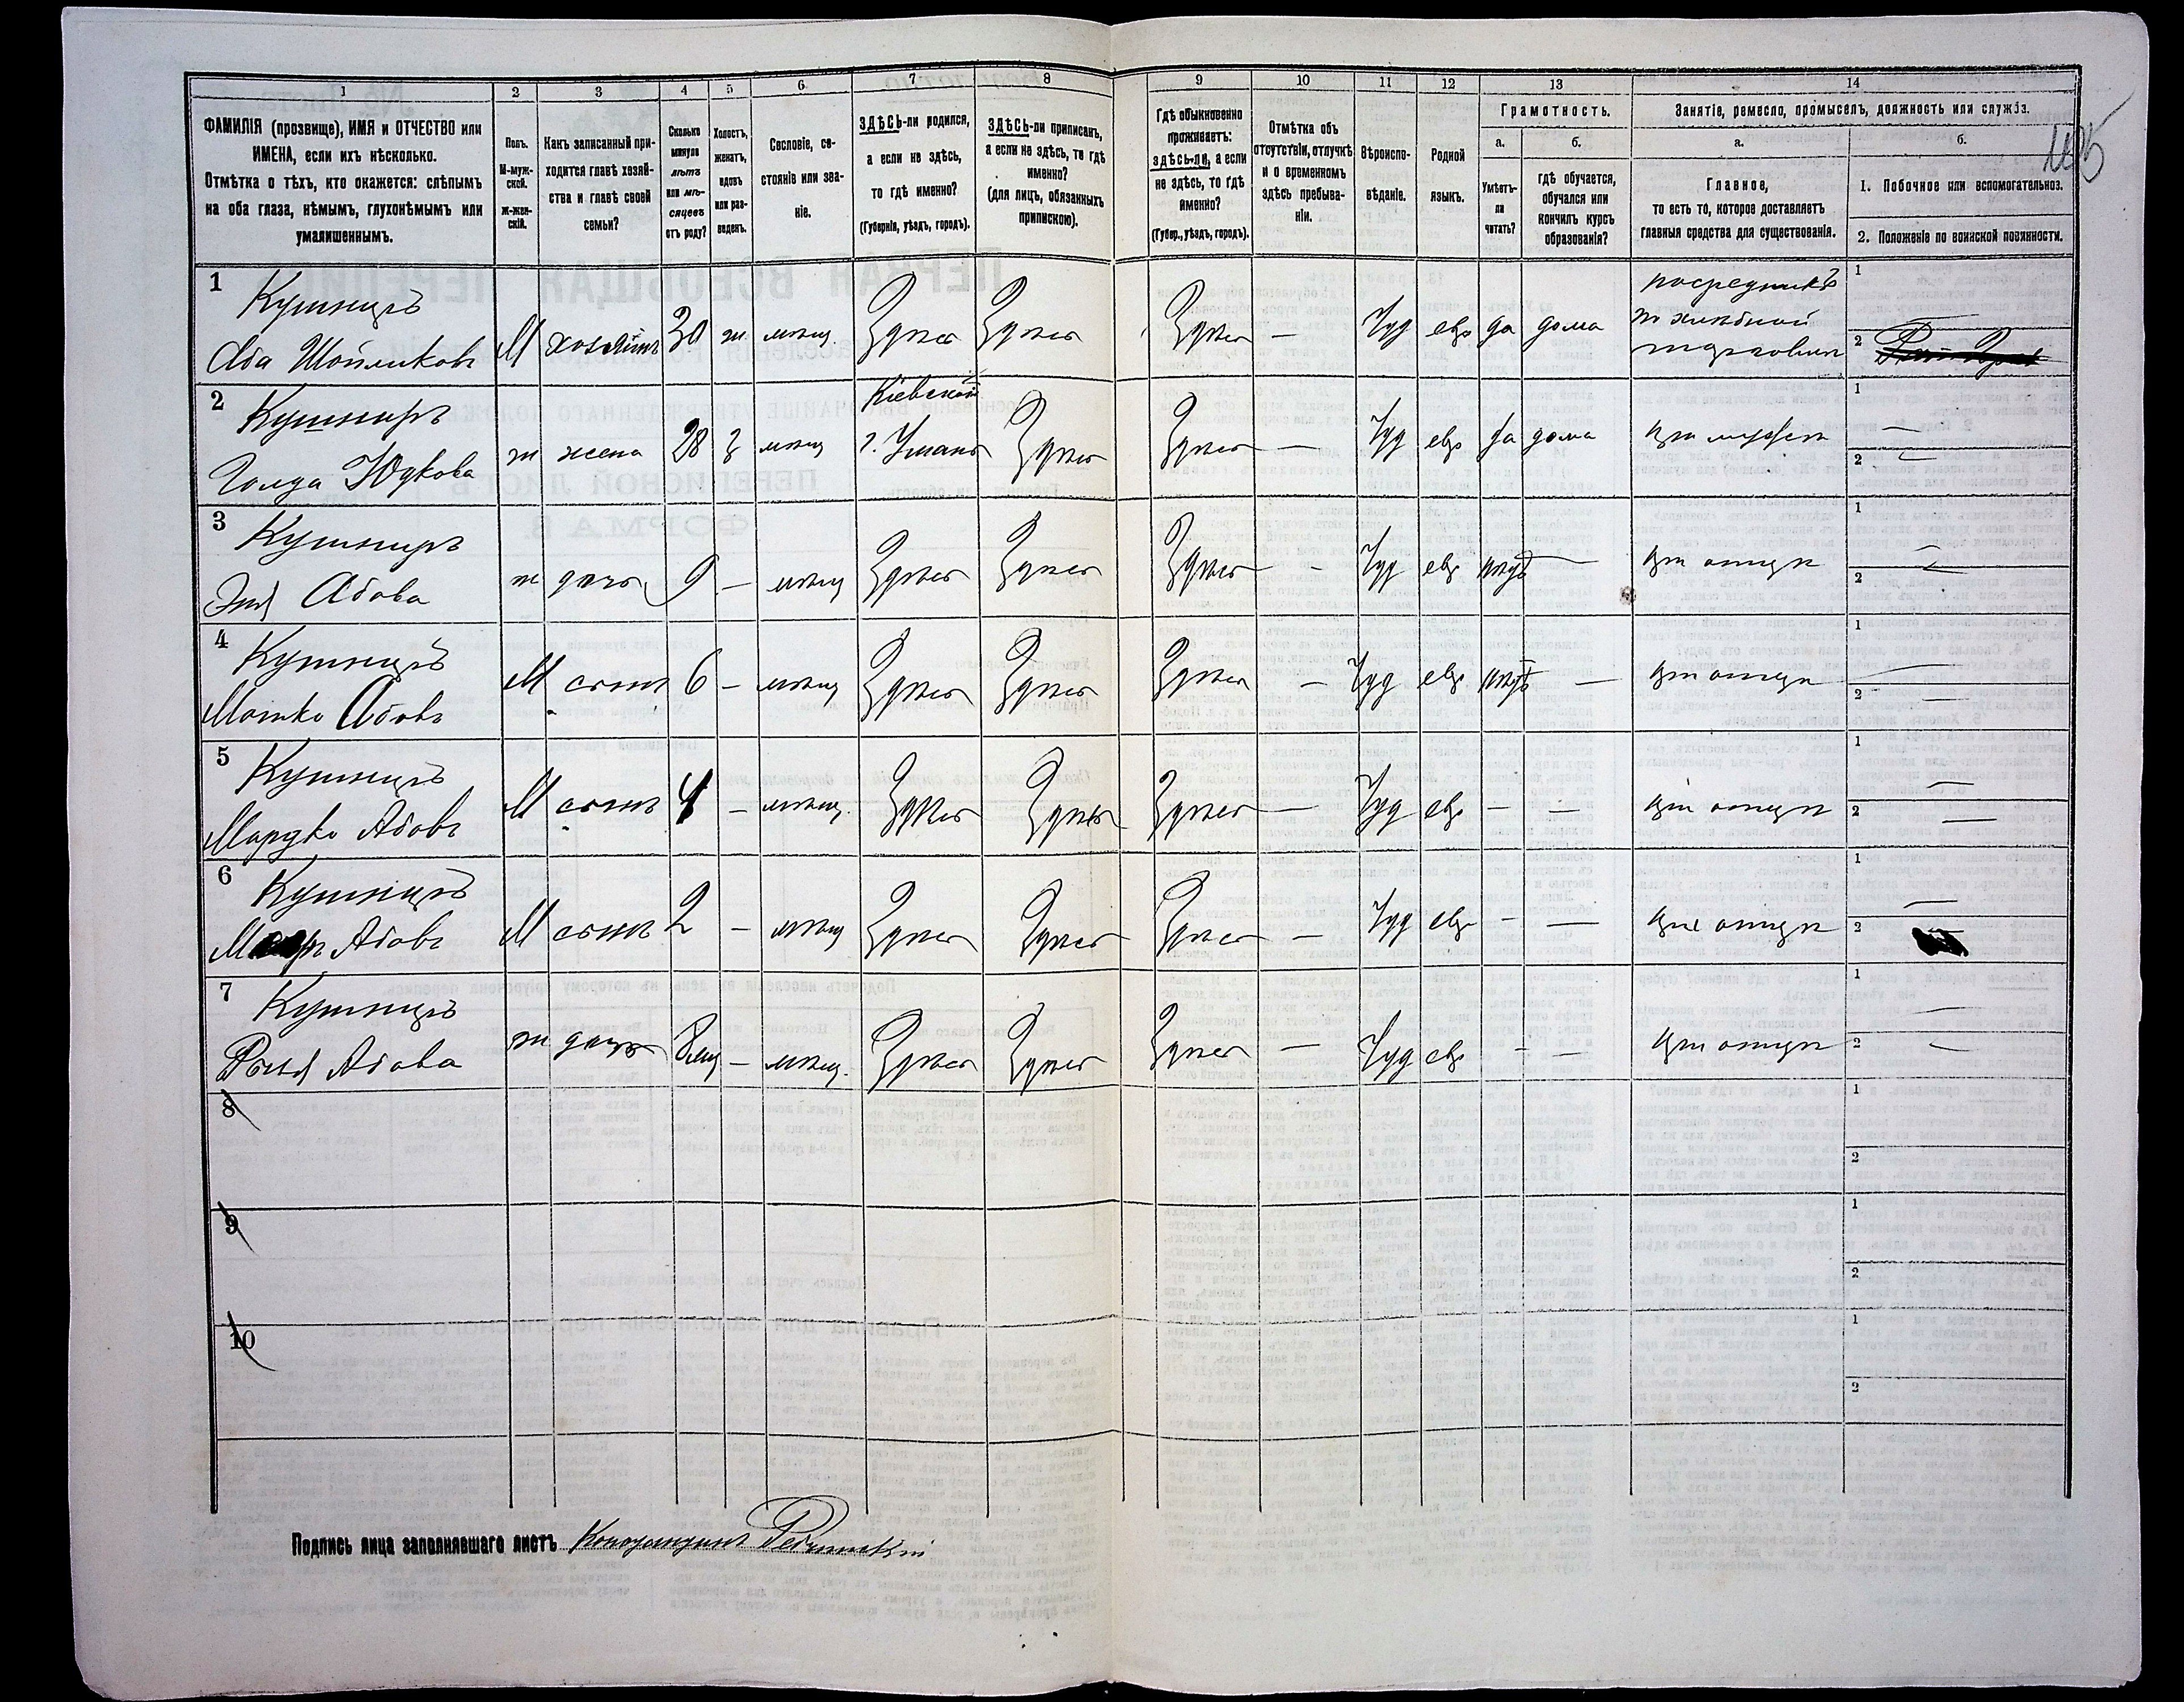 1 2 3 4 5 6 7 8 9 10 11 12 13 14
ФАМИЛІЯ (прозвище), ИМЯ и ОТЧЕСТВО или
ИМЕНА, если ихъ нѣсколько.
Отмѣтка о тѣхъ, кто окажется: слѣпымъ
на оба глаза, нѣмымъ, глухонѣмымъ или
умалишеннымъ.
Полъ.
М-муж-
ской.
Ж-жен-
скій.
Какъ записанный при-
ходится главѣ хозяй-
ства и главѣ своей
семьи?
Сколько
минуло
лѣтъ
или мѣ-
сяцевъ
отъ роду?
Холостъ,
женатъ,
вдовъ
или раз-
веденъ.
Сословіе, со-
стояніе или зва-
ніе.
ЗДѢСЬ-ли родился,
а если не здѣсь,
то гдѣ именно?
(Губернія, уѣздъ, городъ).
ЗДѢСЬ-ли приписанъ,
а если не здѣсь, то гдѣ
именно?
(для лицъ, обязанныхъ
припискою).
Гдѣ обыкновенно
проживаетъ:
здѣсь-ли, а если
не здѣсь, то гдѣ
именно?
(Губер., уѣздъ, городъ).
Отмѣтка объ
отсутствіи, отлучкѣ
и о временномъ
здѣсь пребыва-
ніи.
Вѣроиспо-
вѣданіе.
Родной
языкъ.
Грамотность.
а.
Умѣетъ-
ли
читать?
б.
гдѣ обучается,
обучался или
кончилъ курсъ
образованія?
Занятіе, ремесло, промыселъ, должность или служба.
а.
Главное,
то есть то, которое доставляетъ
главныя средства для существованія.
б.
1. Побочное или вспомогательное.
2. Положеніе по воинской повинности.
1 Кушниръ
Аба Шойликовъ М хозяинъ 30 ж. мѣщ. Здѣсь Здѣсь Здѣсь — Іуд евр да дома посредникъ
по хлѣбной
торговли 1 — 2
2 Кушниръ
Голда Юдкова ж жена 28 з мѣщ Кіевской
г. Умань Здѣсь Здѣсь — Іуд евр да дома при мужѣ 1 — 2 —
3 Кушниръ
Абова ж дочь 9 — мѣщ Здѣсь Здѣсь Здѣсь — Іуд евр нѣтъ — при отцѣ 1 — 2 —
4 Кушниръ
Мошко Абовъ М сынъ 6 — мѣщ Здѣсь Здѣсь Здѣсь — Іуд евр нѣтъ — при отцѣ 1 — 2 —
5 Кушниръ
Мардко Абовъ М сынъ 4 — мѣщ. Здѣсь Здѣсь Здѣсь — Іуд евр — — при отцѣ 1 — 2 —
6 Кушниръ
Абовъ М сынъ 2 — мѣщ Здѣсь Здѣсь Здѣсь — Іуд евр — — при отцѣ 1 — 2
7 Кушниръ
Абова ж дочь 8 мц — мѣщ. Здѣсь Здѣсь Здѣсь — Іуд евр — — при отцѣ 1 — 2 —
8 1 2
9 1 2
10 1 2
Подпись лица заполнявшаго листъ